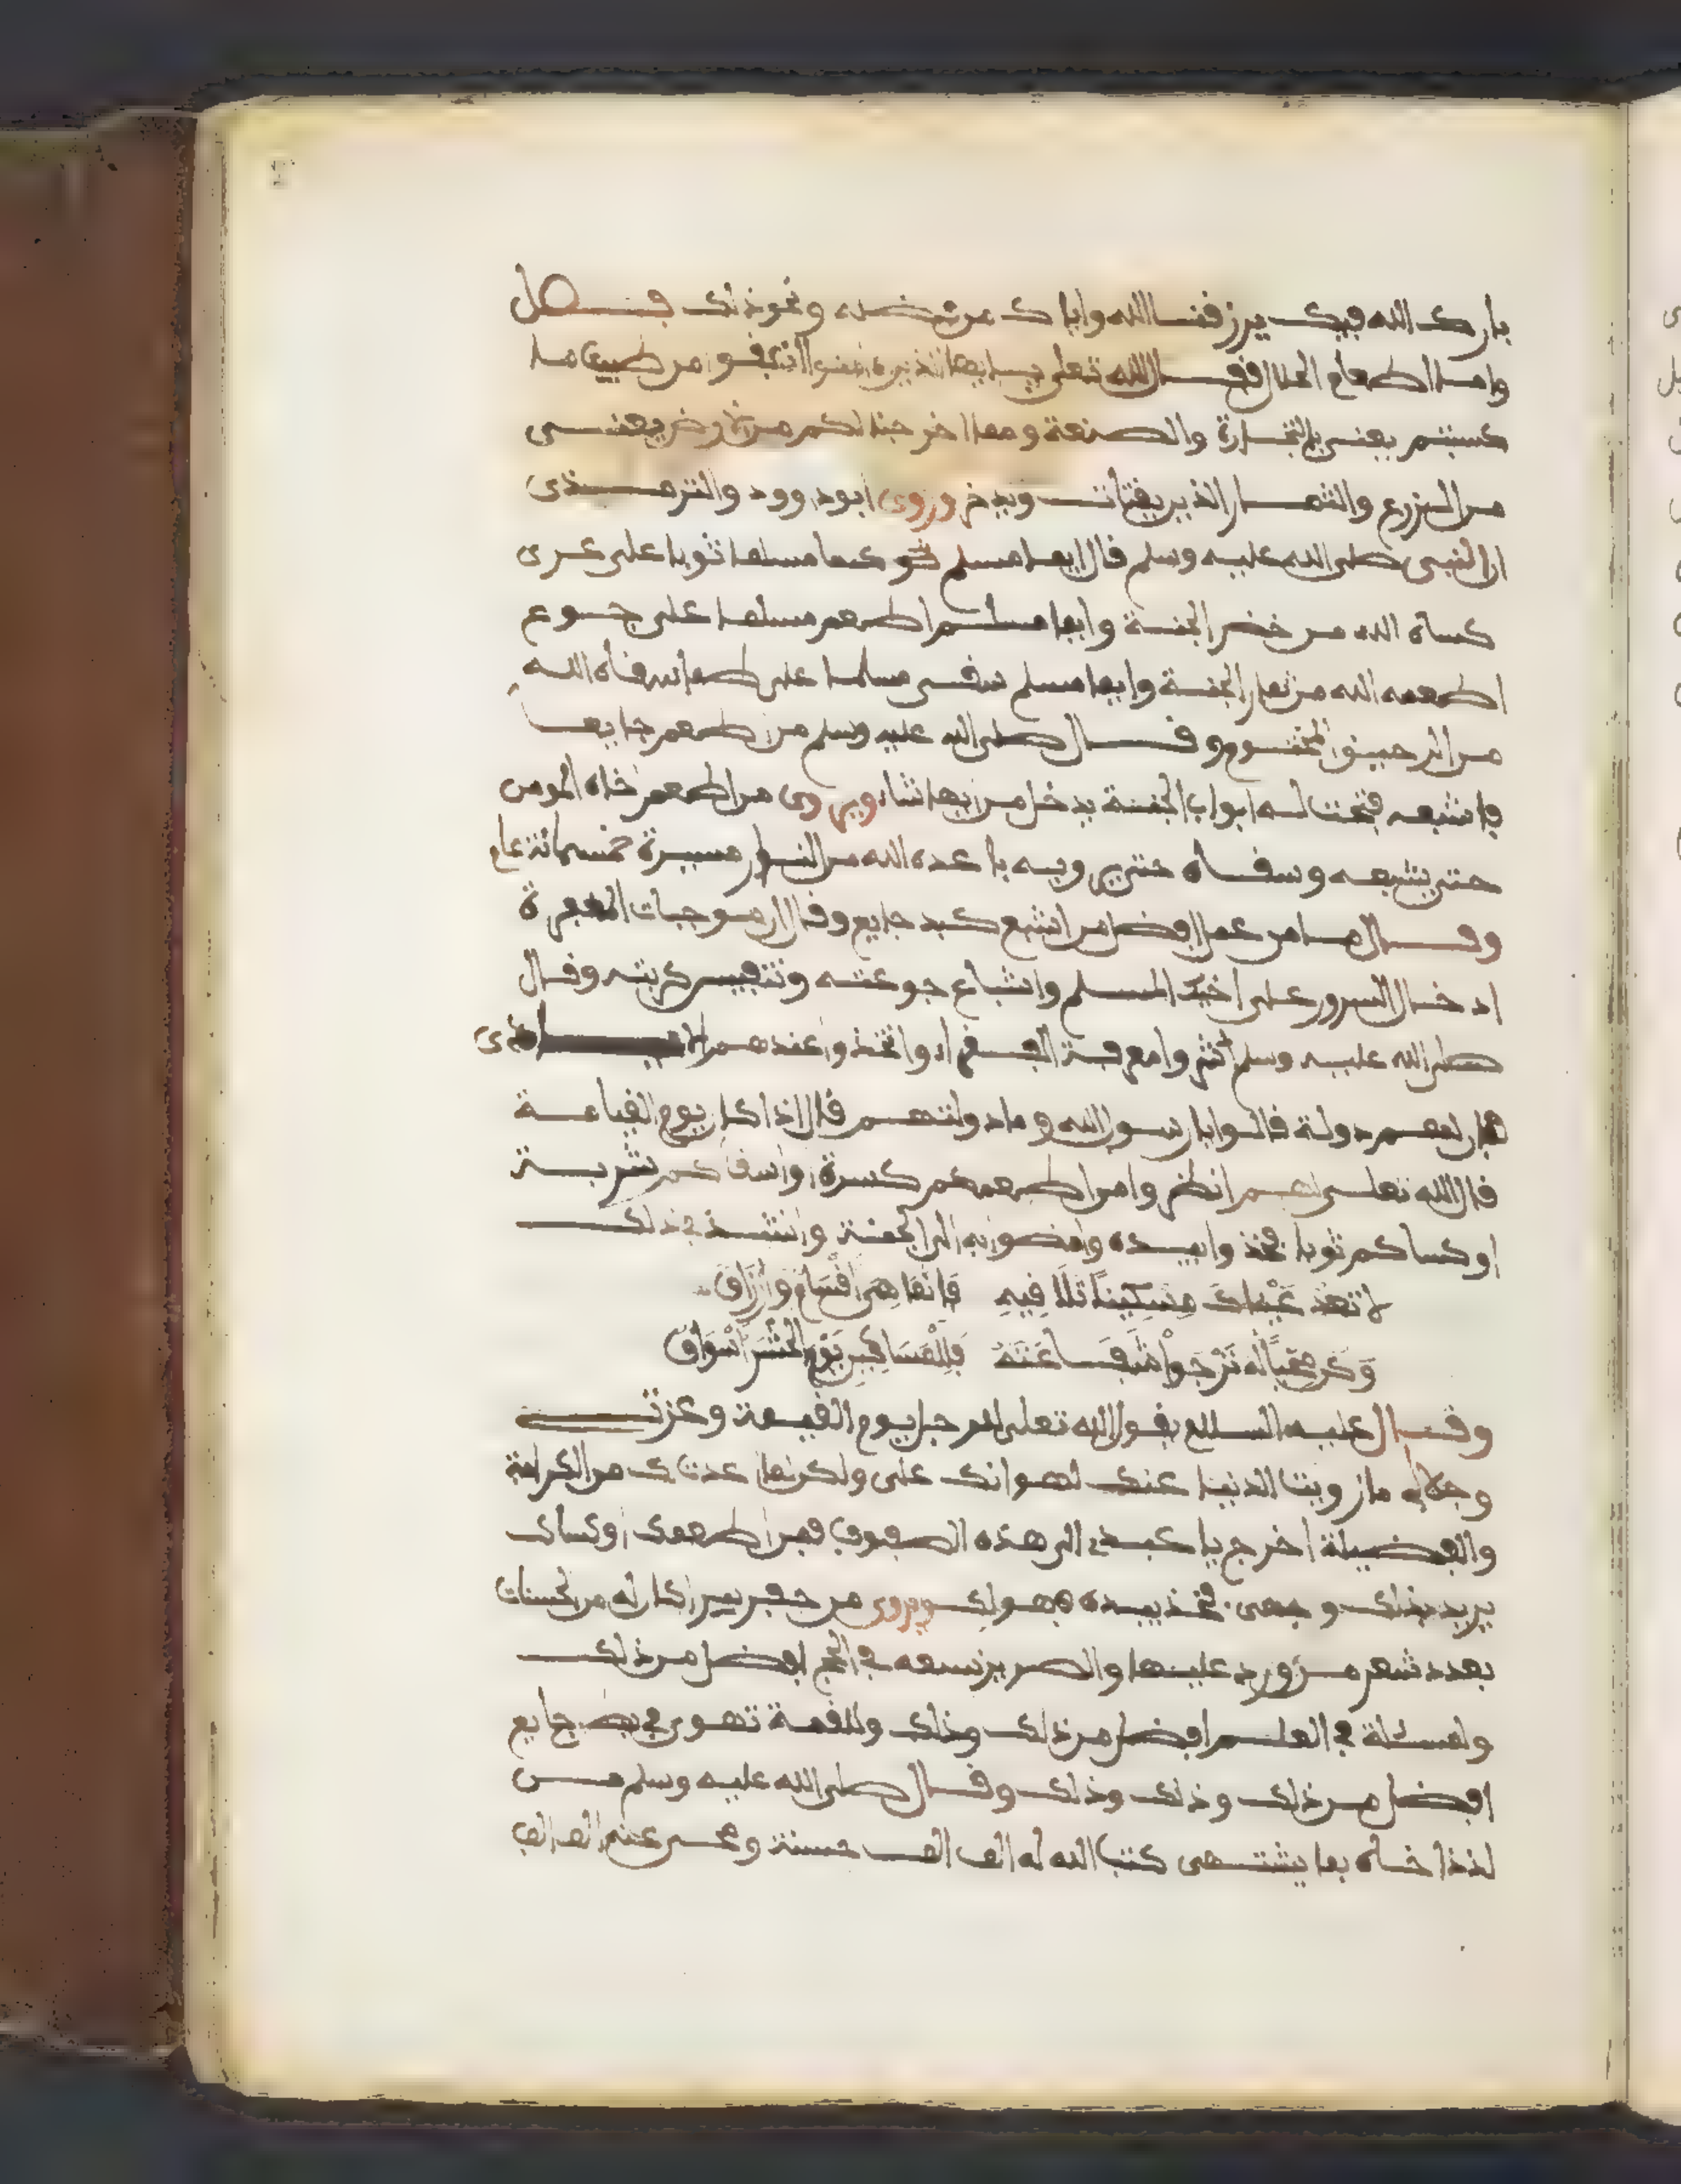 بارك الله فيك يرزقنا الله وإياك من فضله ونحو ذلك فصل
واما الطعام الحلال فقال الله تعلى يا ايها الذين امنوا انفقوا من طيبات ما
كسبتم يعني بالتجارة والصنعة ومما اخرجنا لكم من الارض يعني
من الزرع والثمار الذي يقتات ويدخر وروى ابو داوود والترمذي
ان النبي صلى الله عليه وسلم قال ايما مسلم كسا مسلما ثوبا على عرى
كساه الله من خضر الجنة وايما مسلم اطعم مسلما على جوع
اطعمه الله من ثمار الجنة وايما مسلم سقى مسلما على ظمإ سقاه الله
من الرحيق المختوم وقال صلى الله عليه وسلم من اطعم جايعا
فاشبعه فتحت له ابواب الجنة يدخل من ايها شاء ويروى من اطعم اخاه المومن
حتى يشبعه وسقاه حتى يرويه باعده الله من النار مسيرة خمسمائة عام
وقال ما من عمل افضل من اشبع كبد جايع وقال ان موجبات المغفرة
ادخال السرور على اخيك المسلم واشباع جوعته وتنفيس كربته وقال
صلى الله عليه وسلم اكثروا معرفة الفقراء واتخذوا عندهم الايادى
فان لهم دولة قالوا يا رسول الله وما دولتهم قال اذا كان يوم القيامة
قال الله تعلى لهم انظروا من اطعمكم كسرة او اسقاكم شربة
او كساكم ثوبا فخذوا بيده وامضوا به الى الجنة وانشد في ذلك
لا تعد عيناك مسكينا تلافيه فانما هي اقسام وارزاق
وكن محبا له ترجوا شفاعته فللمساكين يوم الحشر اسواق
وقال عليه السلام يقول الله تعلى للرجل يوم القيمة وعزتى
وجلالى ما زويت الدنيا عنك لهوانك على ولكن لما اعددت لك من الكرامة
والفضيلة اخرج يا عبدي الى هذه الصفوف فمن اطعمك او كساك
يريد بذلك وجهى فخذ بيده فهو لك ويروى من حفر بيرا كان له من الحسنات
بعدد شعر من ورد عليها والصر بزسعه في الحج افضل من ذلك
ولمسئلة في العلم افضل من ذلك وذلك وللقمة تهوى في بطن جايع
افضل من ذلك وذلك وذلك وقال صلى الله عليه وسلم من
لذذ اخاه بما يشتهى كتب الله له الف الف حسنة ومحى عنه الف الف